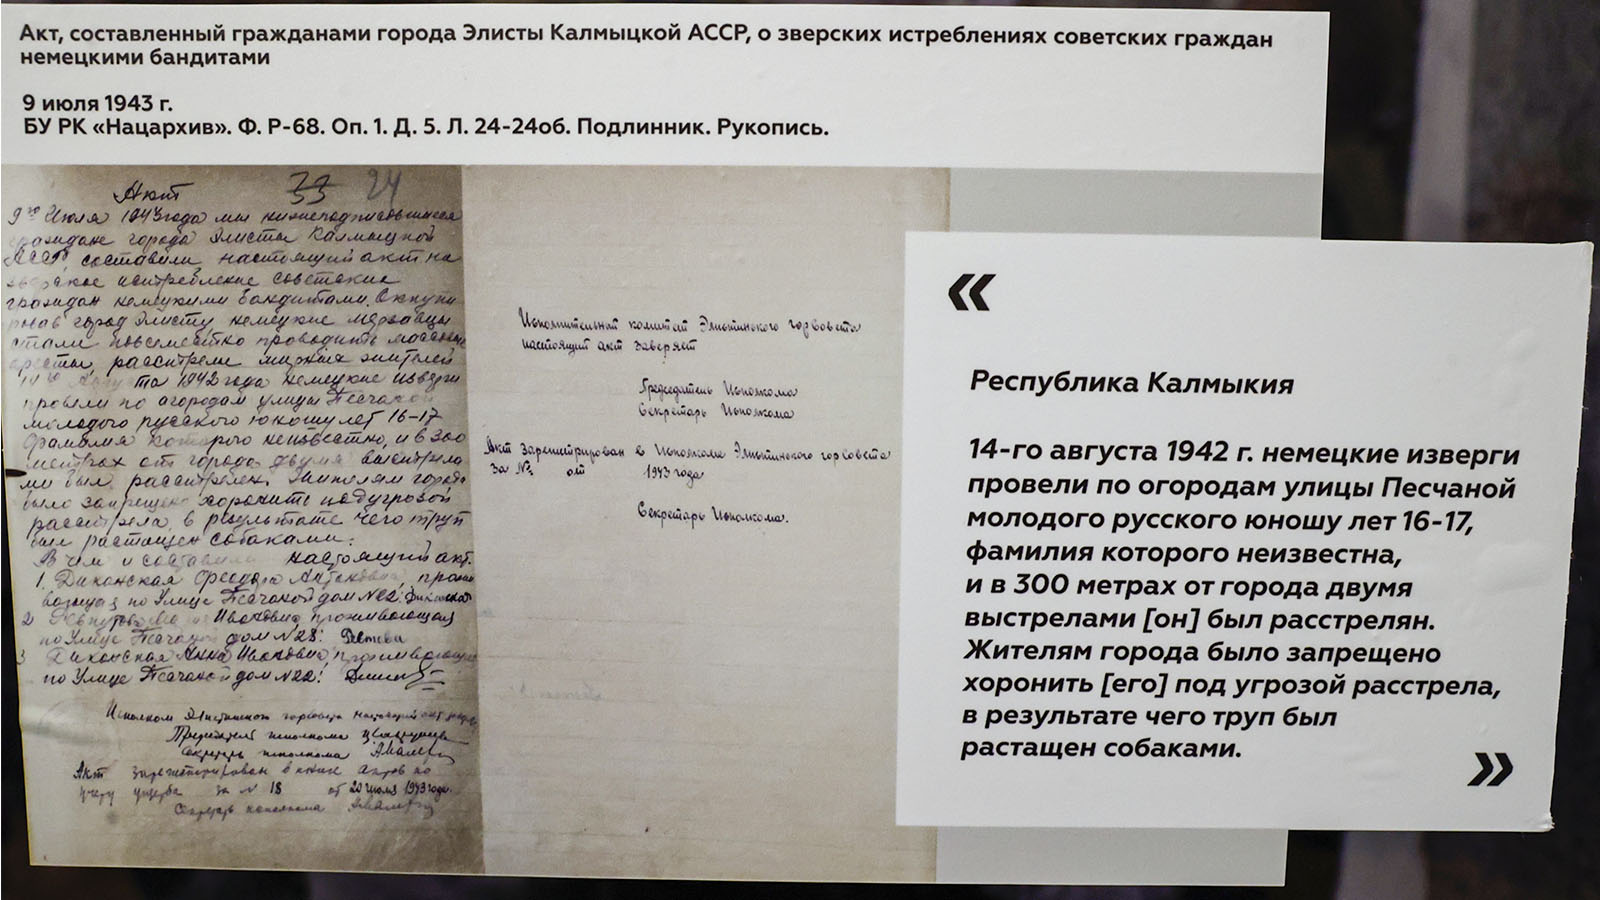 Акт, составленный гражданами города Элисты Калмыцкой АССР, о зверских истреблениях советских граждан
немецкими бандитами
9 июля 1943 г.
БУ РК «Нацархив». Ф. Р-68. Оп. 1. Д. 5. Л. 24-24об. Подлинник. Рукопись.
Акт 33 24
9го Июля 1943 года мы нижеподписавшиеся
граждане города Элисты Калмыцкой
АССР составили настоящий акт на
зверское истребление советских
граждан немецкими бандитами. Оккупи
ровав город Элисту, немецкие мерзавцы
стали повсеместно проводить массовые
аресты, расстрелы мирных жителей
14го Августа 1942 года немецкие изверги
провели по огородам улицы Песчаной
молодого русского юношу лет 16-17
фамилия которого неизвестно, и в 300
метрах от города двумя выстрела
ми был расстрелен. Жителям города
было запрещено хоронить под угрозой
расстрела, в результате чего труп
был растащен собаками.
В чем и составили настоящий акт.
1. Диканская Феодора Антоновна прожи
вающая по Улице Песчаной дом №22.
2 Ивановна, проживающая
по Улице Песчаной дом №28.
3 Диканская Анна Ивановна проживающая
по Улице Песчаной дом №22.
Исполком Элистинского горсовета настоящий акт
исполкома
Секретарь исполкома
Акт зарегистрирован в книге актов по
учету ущерба за № 18 от 20 июля 1943 года.
Секретарь исполкома
Исполнительный комитет Элистинского горсовета
настоящий акт заверяет
Председатель Исполкома
Секретарь Исполкома
Акт зарегистрирован в Исполкоме Элистинского горсовета
за № от 1943 года
Секретарь Исполкома.
«
Республика Калмыкия
14-го августа 1942 г. немецкие изверги
провели по огородам улицы Песчаной
молодого русского юношу лет 16-17,
фамилия которого неизвестна,
и в 300 метрах от города двумя
выстрелами [он] был расстрелян.
Жителям города было запрещено
хоронить [его] под угрозой расстрела,
в результате чего труп был
растащен собаками.
»